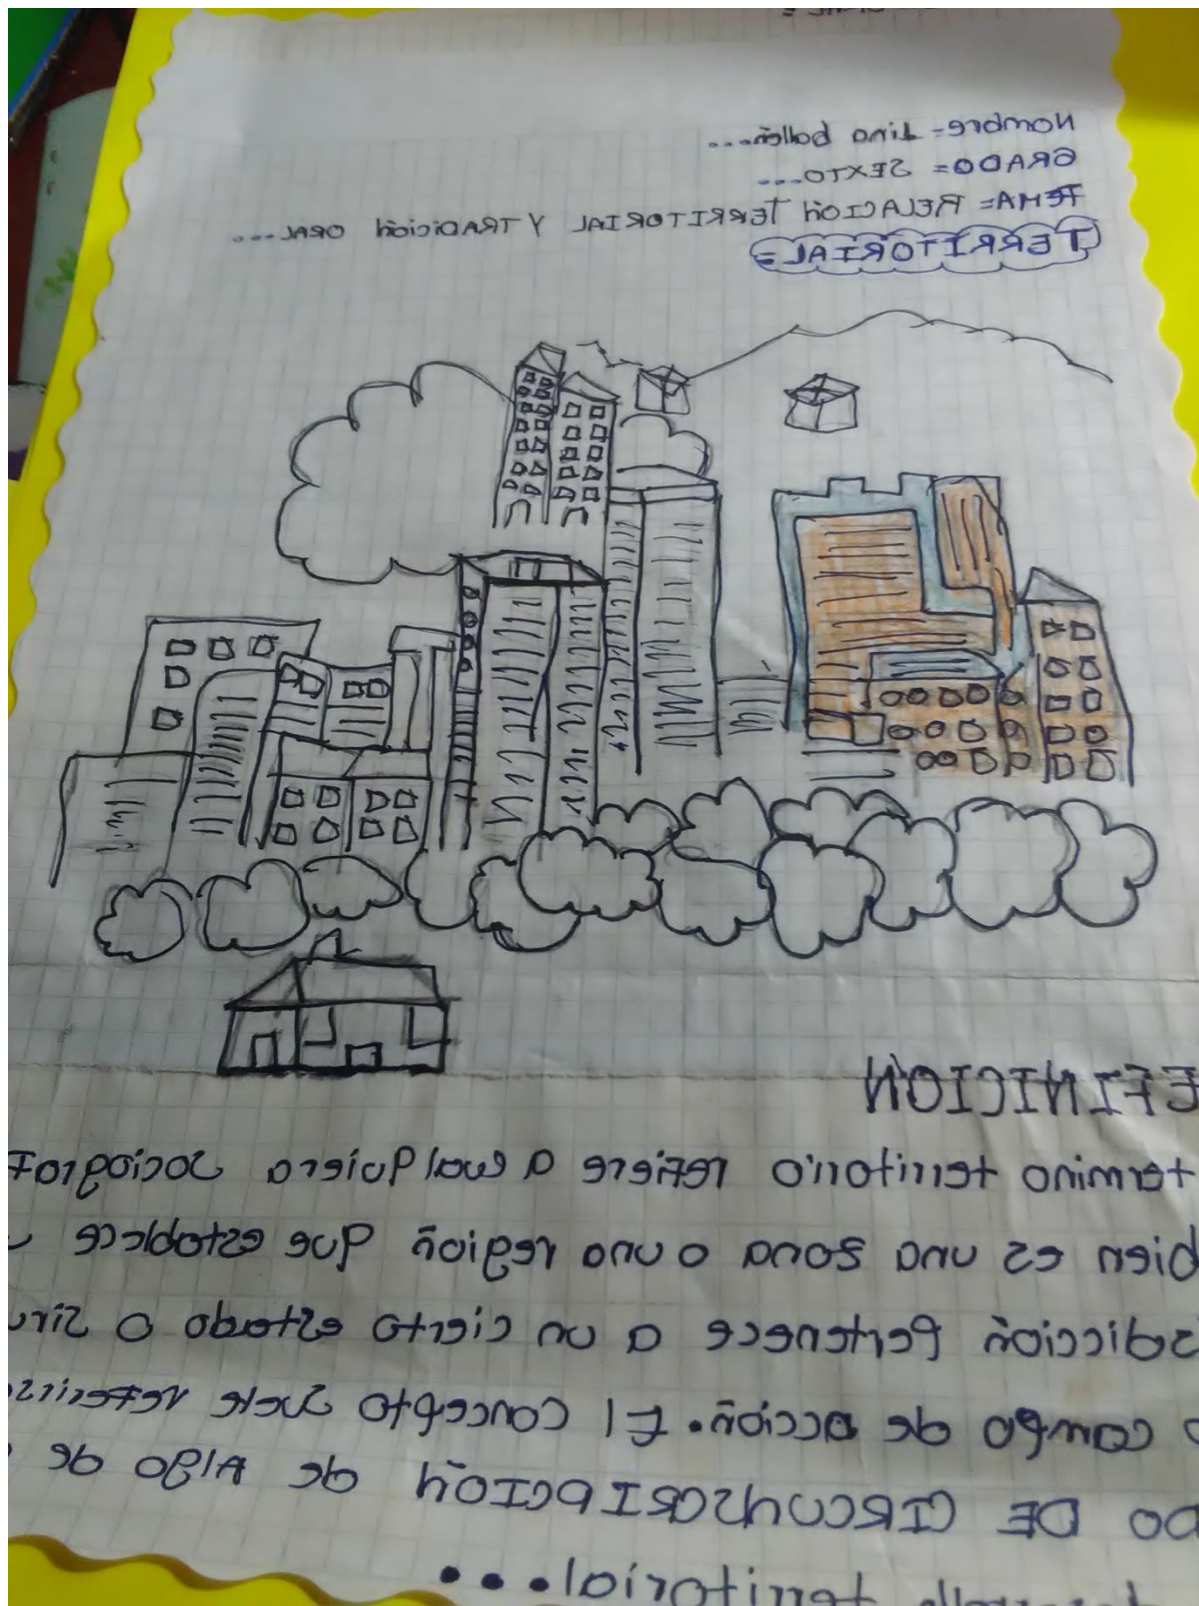 Nombre= Lina ballén...
GRADO= SEXTO...
TEMA= RELACIÓN TERRITORIAL Y TRADICIÓN ORAL...
TERRITORIAL=
EFINICIÓN
termino territorio refiere a cualquiera
bien es una zona o una región que establece
pertenece a un cierto estado o
campo de acción. El concepto suele
DO DE CIRCUNSCRIPCIÓN de Algo de
territorial...